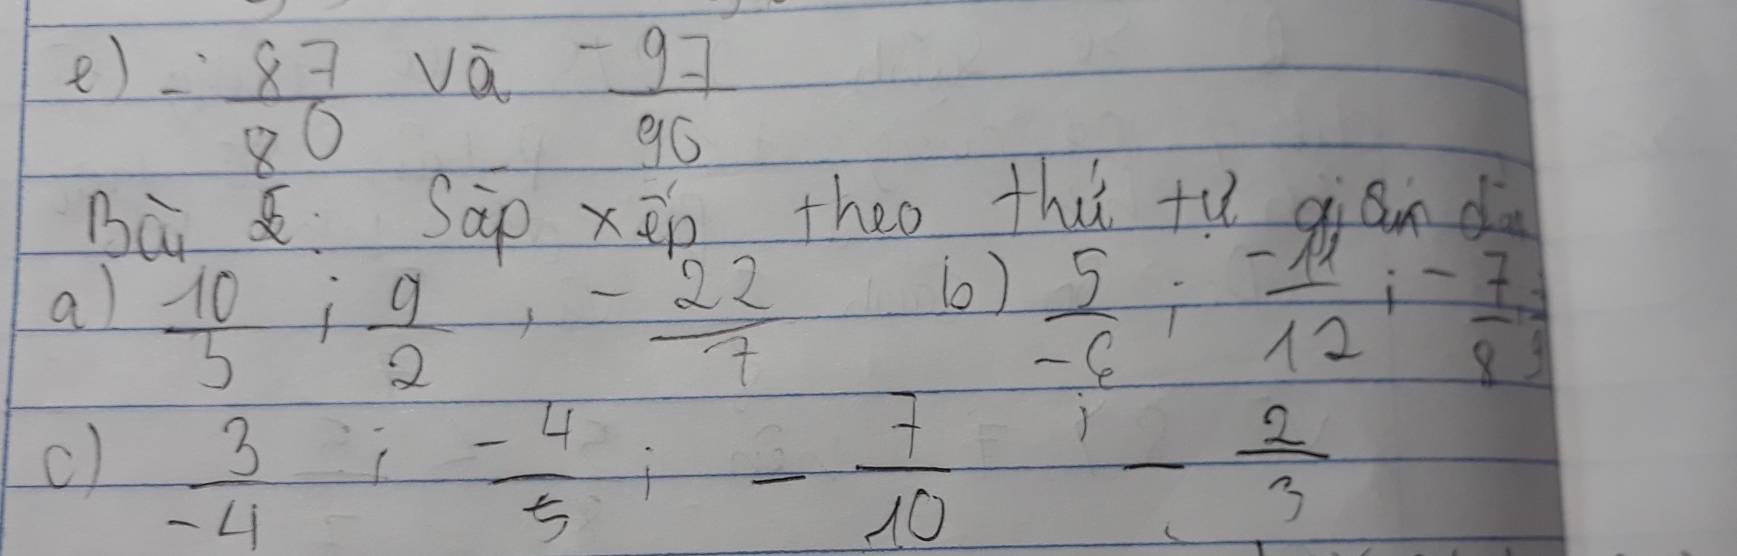 e) - 87/80 và -97/96
Bài 2: Sắp xếp theo thứ tự giảm dần
a) 10/3 ; 9/2 ; - 22/7 b) 5/-6 ; -11/12 ; - 7/8
c) 3/-4 ; -4/5 ; - 7/10 ; - 2/3